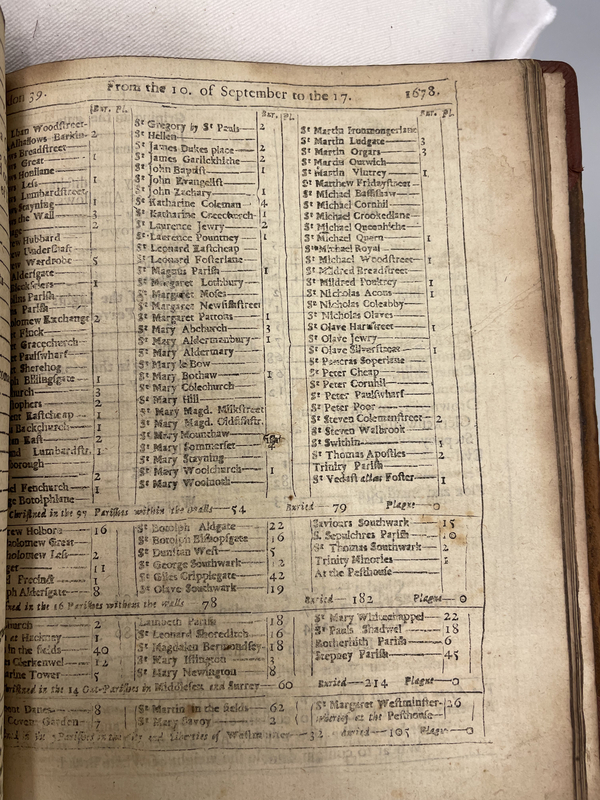 don 39. From the 10. of September to the 17. 1678.
Bur. Pl. Bur. Pl. Bur. Pl.
lban Woodstreet
Alhallows Barkin 2
ws Breadstreet
ws Great 1
ws Honilane
ws Less 1
ws Lumbardstreet
ws Stayning 1
ws the Wall 3
2
ew Hubbard
ew Undershaft
ew Wardrobe 5
Aldersgate
1
ins Parish
s Parish
olomew Exchange 2
t Finck
t Gracechurch
et Paulswharf
t Sherehog
h Billingsgate 1
church 3
tophers 2
ent Eastcheap 1
s Backchurch 1
an East 2
nd Lumbardstr. 1
borough
2
el Fenchurch 1
ge Botolphlane
St Gregory by St Pauls 2
St Hellen
St James Dukes place 2
St James Garlickhithe 2
St John Baptist 1
St John Evangelist
St John Zachary 1
St Katharine Coleman 4
St Katharine Creechurch 1
St Laurence Jewry 2
St Laurence Pountney 1
St Leonard Eastcheap
St Leonard Fosterlane
St Magnus Parish 1
St Margaret Lothbury
St Margaret Moses
St Margaret Newfishstreet
St Margaret Pattons 1
St Mary Abchurch 3
St Mary Aldermanbury 1
St Mary Aldermary
St Mary le Bow
St Mary Bothaw 1
St Mary Colechurch
St Mary Hill
St Mary Magd. Milkstreet
St Mary Magd. Oldfishstr.
St Mary Mounthaw
St Mary Sommerset 4
St Mary Stayning
St Mary Woolchurch 1
St Mary Woolnoth
St Martin Ironmongerlane
St Martin Ludgate 3
St Martin Orgars 3
St Martin Outwich
St Martin Vintrey 1
St Matthew Fridaystreet
St Michael Bassishaw
St Michael Cornhil
St Michael Crookedlane
St Michael Queenhithe
St Michael Quern 1
St Michael Royal
St Michael Woodstreet 1
St Mildred Breadstreet
St Mildred Poultrey 1
St Nicholas Acons 1
St Nicholas Coleabby
St Nicholas Olaves
St Olave Hartstreet 1
St Olave Jewry
St Olave Silverstreet 1
St Pancras Soperlane
St Peter Cheap
St Peter Cornhil
St Peter Paulswharf
St Peter Poor
St Steven Colemanstreet 2
St Steven Walbrook
St Swithin 1
St Thomas Apostles 2
Trinity Parish
St Vedast alias Foster 1
Christned in the 97 Parishes within the walls 54 Buried 79 Plague 0
rew Holborn 16
tholomew Great
tholomew Less 2
11
Precinct 1
ph Aldersgate 8
St Botolph Aldgate 22
St Botolph Bishopsgate 16
St Dunstan West 5
St George Southwark 12
St Giles Cripplegate 42
St Olave Southwark 19
Saviours Southwark 15
S. Sepulchres Parish 10
St Thomas Southwark 2
Trinity Minories 1
At the Pesthouse
ned in the 16 Parishes without the walls 78 Buried 182 Plague 0
church 2
at Hackney 1
in the fields 40
s Clerkenwel 12
arine Tower 5
Lambeth Parish 18
St Leonard Shoreditch 16
St Magdalen Bermondsey 18
St Mary Islington 3
St Mary Newington 8
St Mary Whitechappel 22
St Pauls Shadwel 18
Rotherhith Parish 6
Stepney Parish 45
ristned in the 14 Out-Parishes in Middlesex and Surrey 60 Buried 214 Plague 0
ment Danes 8
Covent Garden 7
St Martin in the fields 62
St Mary Savoy 2
St Margaret Westminster 26
whereof at the Pesthouse
in the 5 Parishes in the City and Liberties of Westminster 32 Buried 105 Plague 0